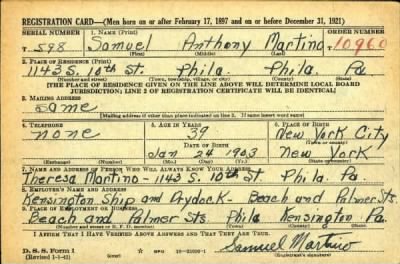 REGISTRATION CARD—(Men born on or after February 17, 1897 and on or before December 31, 1921)
SERIAL NUMBER 1. NAME (Print) ORDER NUMBER
T 598 Samuel Anthony Martino T10960
(First) (Middle) (Last)
2. PLACE OF RESIDENCE (Print)
1143 S. 10th St. Phila. Phila. Pa
(Number and street) (Town, township, village, or city) (County) (State)
[THE PLACE OF RESIDENCE GIVEN ON THE LINE ABOVE WILL DETERMINE LOCAL BOARD
JURISDICTION; LINE 2 OF REGISTRATION CERTIFICATE WILL BE IDENTICAL]
3. MAILING ADDRESS
Same
[Mailing address if other than place indicated on line 2. If same insert word same]
4. TELEPHONE 5. AGE IN YEARS 6. PLACE OF BIRTH
none 39 New York City
DATE OF BIRTH (Town or county)
Jan 24 1903 New York
(Exchange) (Number) (Mo.) (Day) (Yr.) (State or country)
7. NAME AND ADDRESS OF PERSON WHO WILL ALWAYS KNOW YOUR ADDRESS
Theresa Martino - 1143 S. 10th St. Phila. Pa
8. EMPLOYER'S NAME AND ADDRESS
Kensington Ship and Drydock - Beach and Palmer Sts.
9. PLACE OF EMPLOYMENT OR BUSINESS
Beach and Palmer Sts Phila Kensington Pa.
(Number and street or R. F. D. number) (Town) (County) (State)
I AFFIRM THAT I HAVE VERIFIED ABOVE ANSWERS AND THAT THEY ARE TRUE.
D. S. S. Form 1 GPO
(Revised 1-1-42) (over) Samuel Martino
(Registrant's signature)